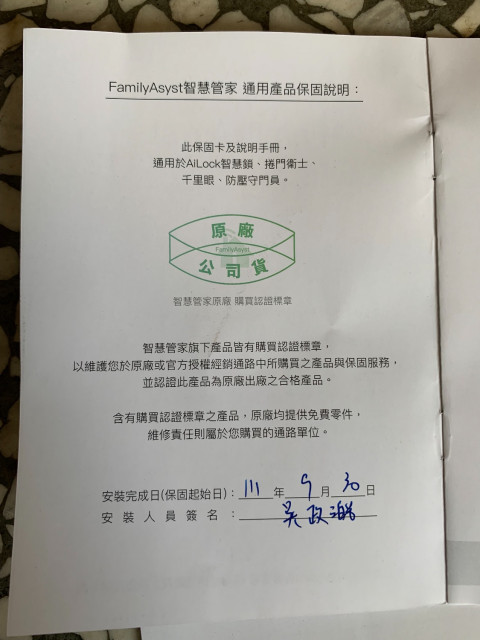 FamilyAsyst智慧管家 通用產品保固說明：
此保固卡及說明手冊，
適用於AILock智慧鎖、捲門衛士、
千里眼、防壓守門員。
原廠
FamilyAsyst
公司貨
智慧管家原廠 購買認證標章
智慧管家旗下產品皆有購買認證標章，
以維護您於原廠或官方授權經銷通路中所購買之產品與保固服務，
並認證此產品為原廠出廠之合格產品。
含有購買認證標章之產品，原廠均提供免費零件，
維修責任則屬於您購買的通路單位。
安裝完成日(保固起始日)：111年9月30日
安裝人員簽名：吳政